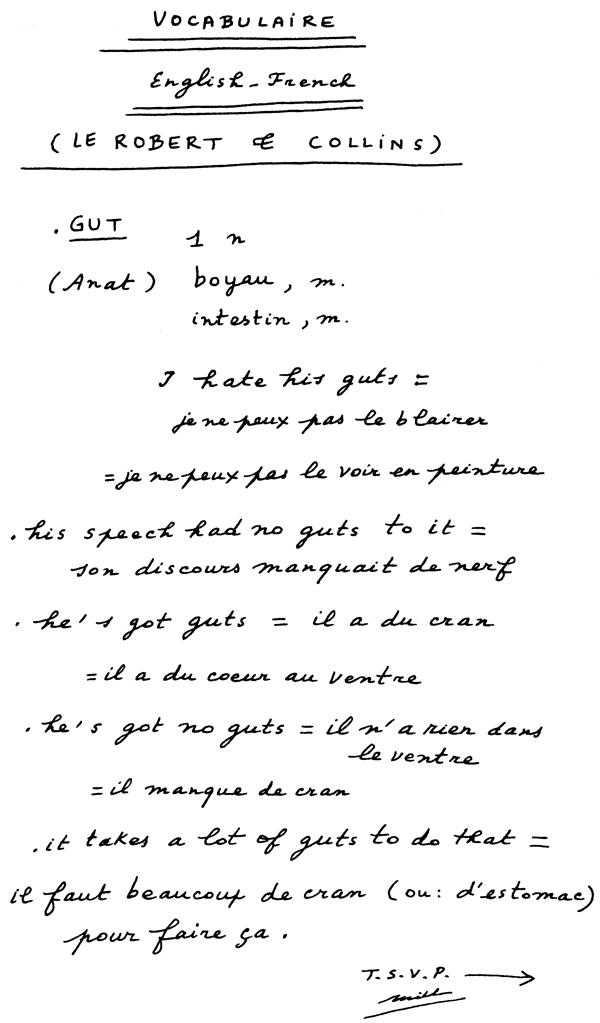 VOCABULAIRE
English - French
(LE ROBERT & COLLINS)
. GUT 1 n
(Anat) boyau, m.
intestin, m.
I hate his guts =
je ne peux pas le blairer
= je ne peux pas le voir en peinture
. his speech had no guts to it =
son discours manquait de nerf
. he's got guts = il a du cran
= il a du coeur au ventre
. he's got no guts = il n'a rien dans
le ventre
= il manque de cran
. it takes a lot of guts to do that =
il faut beaucoup de cran (ou: d'estomac)
pour faire ça.
T.S.V.P. →